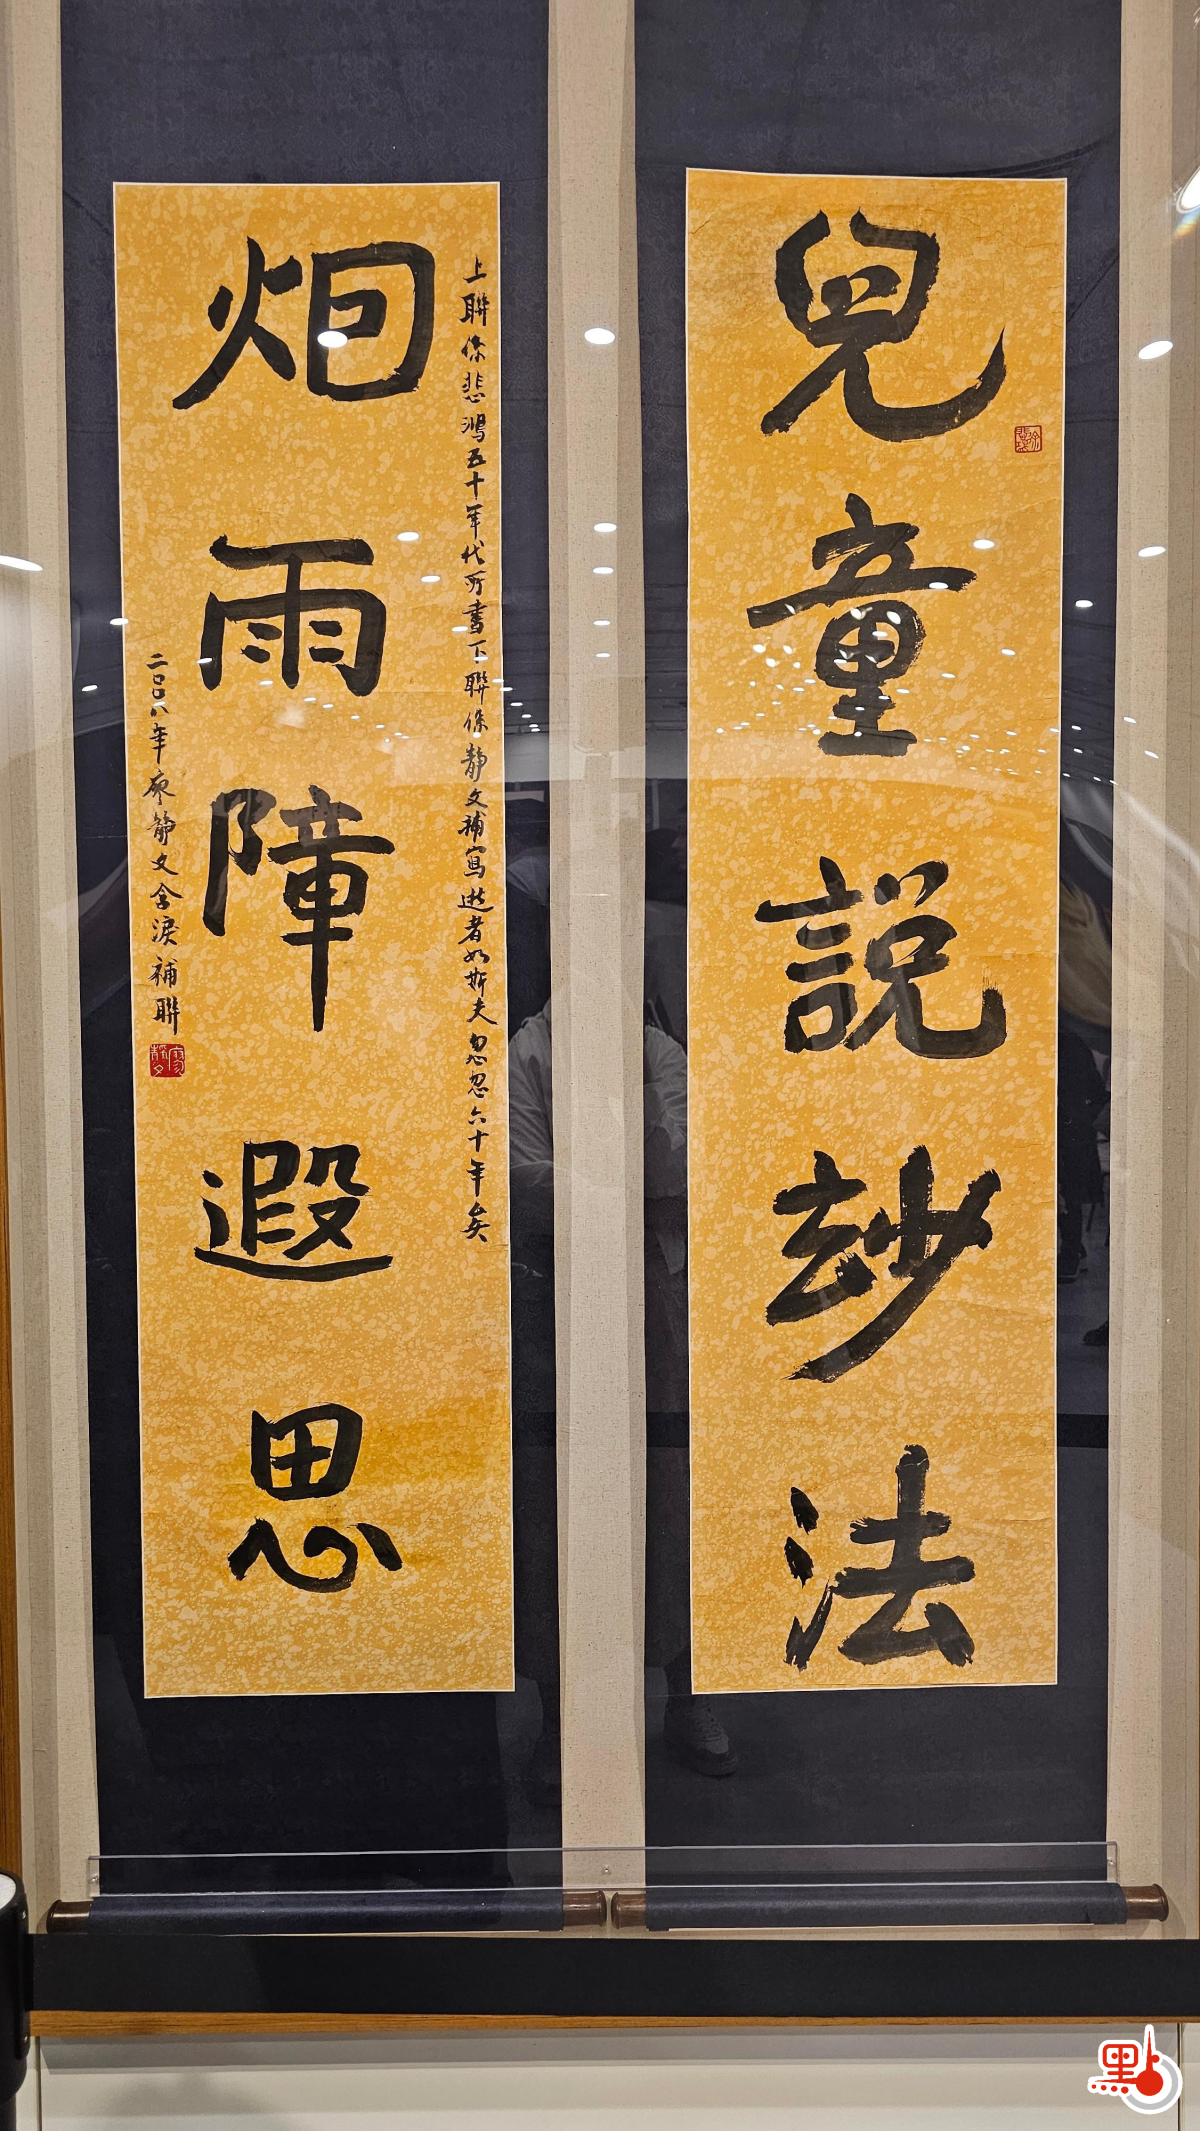 兒童說妙法
悲鴻
烟雨障遐思
上聯係悲鴻五十年代所書下聯係靜文補寫逝者如斯夫忽忽六十年矣
二〇〇八年廖靜文含淚補聯
廖靜文
點